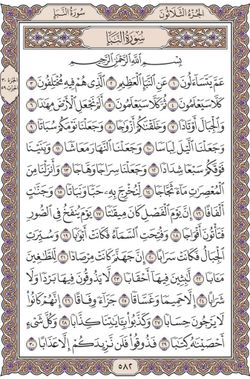 الجزء الثلاثون سورة النبإ
سورة النبإ
بسم الله الرحمن الرحيم
عَمَّ يَتَسَاءَلُونَ ١ عَنِ النَّبَإِ الْعَظِيمِ ٢ الَّذِي هُمْ فِيهِ مُخْتَلِفُونَ ٣
كَلَّا سَيَعْلَمُونَ ٤ ثُمَّ كَلَّا سَيَعْلَمُونَ ٥ أَلَمْ نَجْعَلِ الْأَرْضَ مِهَادًا ٦
وَالْجِبَالَ أَوْتَادًا ٧ وَخَلَقْنَاكُمْ أَزْوَاجًا ٨ وَجَعَلْنَا نَوْمَكُمْ سُبَاتًا ٩
وَجَعَلْنَا اللَّيْلَ لِبَاسًا ١٠ وَجَعَلْنَا النَّهَارَ مَعَاشًا ١١ وَبَنَيْنَا
فَوْقَكُمْ سَبْعًا شِدَادًا ١٢ وَجَعَلْنَا سِرَاجًا وَهَّاجًا ١٣ وَأَنزَلْنَا مِنَ
الْمُعْصِرَاتِ مَاءً ثَجَّاجًا ١٤ لِّنُخْرِجَ بِهِ حَبًّا وَنَبَاتًا ١٥ وَجَنَّاتٍ
أَلْفَافًا ١٦ إِنَّ يَوْمَ الْفَصْلِ كَانَ مِيقَاتًا ١٧ يَوْمَ يُنفَخُ فِي الصُّورِ
فَتَأْتُونَ أَفْوَاجًا ١٨ وَفُتِحَتِ السَّمَاءُ فَكَانَتْ أَبْوَابًا ١٩ وَسُيِّرَتِ
الْجِبَالُ فَكَانَتْ سَرَابًا ٢٠ إِنَّ جَهَنَّمَ كَانَتْ مِرْصَادًا ٢١ لِّلطَّاغِينَ
مَآبًا ٢٢ لَّابِثِينَ فِيهَا أَحْقَابًا ٢٣ لَّا يَذُوقُونَ فِيهَا بَرْدًا وَلَا
شَرَابًا ٢٤ إِلَّا حَمِيمًا وَغَسَّاقًا ٢٥ جَزَاءً وِفَاقًا ٢٦ إِنَّهُمْ كَانُوا
لَا يَرْجُونَ حِسَابًا ٢٧ وَكَذَّبُوا بِآيَاتِنَا كِذَّابًا ٢٨ وَكُلَّ شَيْءٍ
أَحْصَيْنَاهُ كِتَابًا ٢٩ فَذُوقُوا فَلَن نَّزِيدَكُمْ إِلَّا عَذَابًا ٣٠
٥٨٢